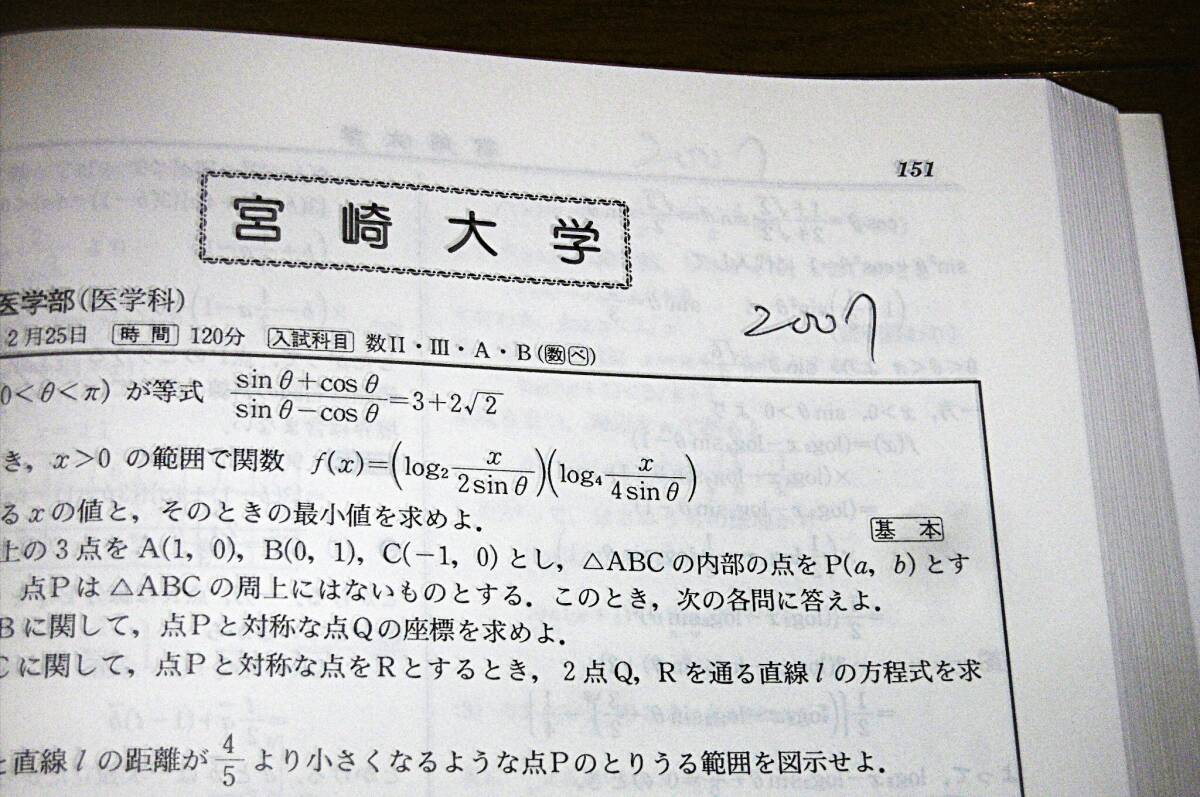 151
宮崎大学
医学部(医学科)
2009
2月25日 時間 120分 入試科目 数II・III・A・B(数ベ)
0<θ<π) が等式 (sinθ+cosθ)/(sinθ−cosθ)=3+2√2
き, x>0 の範囲で関数 f(x)=(log₂ x/(2sinθ))(log₄ x/(4sinθ))
る x の値と, そのときの最小値を求めよ.
基本
上の3点を A(1, 0), B(0, 1), C(−1, 0) とし, △ABC の内部の点を P(a, b) とす
点Pは △ABC の周上にはないものとする. このとき, 次の各問に答えよ.
Bに関して, 点Pと対称な点Qの座標を求めよ.
Cに関して, 点Pと対称な点をRとするとき, 2点Q, Rを通る直線 l の方程式を求
直線 l の距離が 4/5 より小さくなるような点Pのとりうる範囲を図示せよ.